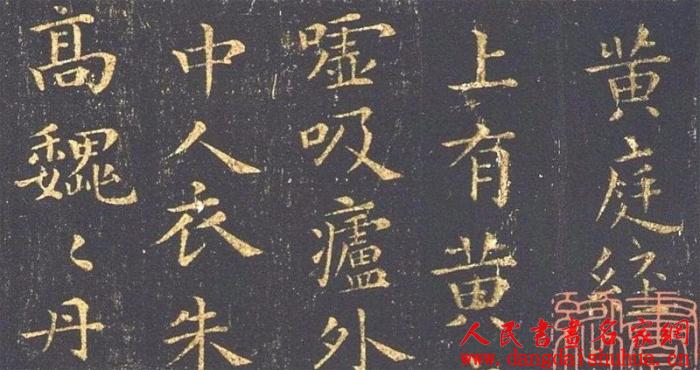 黄庭經
上有黄
嘘吸廬外
中人衣朱
高巍〻丹
人民書畫名家網
www.dangdaishuhua.cn